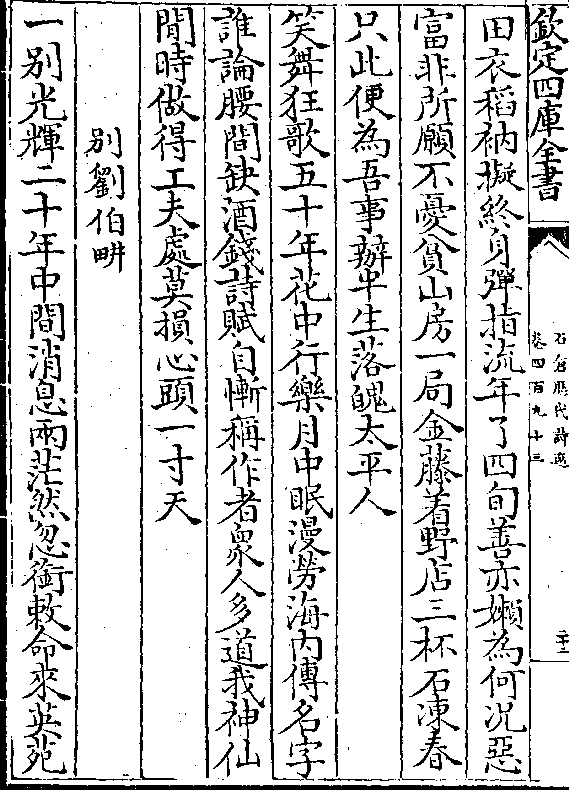 欽定四庫全書
石倉歷代詩選
卷四百九十三
二十二
田衣稻衲擬終身彈指流年了四旬善亦嬾為何况惡
富非所願不憂貧山房一局金藤着野店三杯石凍春
只此便為吾事辦半生落魄太平人
笑舞狂歌五十年花中行樂月中眠漫勞海内傳名字
誰論腰間缺酒錢詩賦自慚稱作者衆人多道我神仙
閒時做得工夫處莫損心頭一寸天
别劉伯畊
一别光輝二十年中間消息兩茫然忽銜敕命來英苑